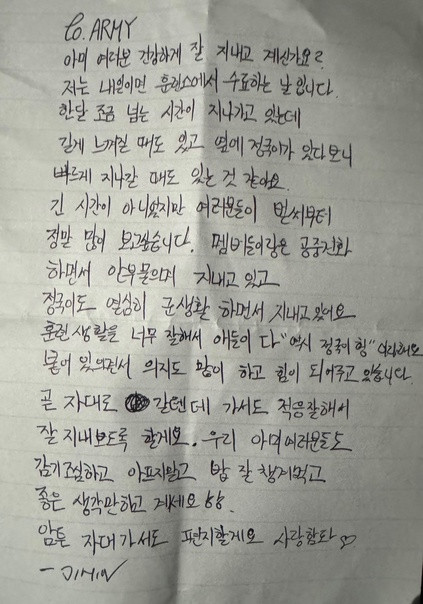 to. ARMY
아미 여러분 건강하게 잘 지내고 계신가요?
저는 내일이면 훈련소에서 수료하는 날입니다.
한달 조금 넘는 시간이 지나가고 있는데
길게 느껴질 때도 있고 옆에 정국이가 있다보니
빠르게 지나갈 때도 있는 것 같아요.
긴 시간이 아니었지만 여러분들이 벌써부터
정말 많이 보고싶습니다. 멤버들이랑은 공중전화
하면서 안부물으며 지내고 있고
정국이도 열심히 군생활 하면서 지내고있어요
훈련생활을 너무 잘해서 애들이 다 "역시 정국이 형" 이래요
붙어 있으면서 의지도 많이 하고 힘이 되어주고 있습니다.
곧 자대로 갈텐데 가서도 적응잘해서
잘 지내보도록 할게요. 우리 아미여러분들도
감기조심하고 아프지말고 밥 잘 챙겨먹고
좋은 생각만하고 계세요
암튼 자대가서도 편지할게요 사랑함다 ♡
- JIMIN